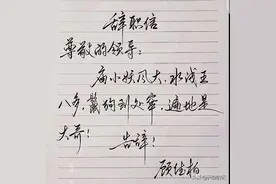 辞职信
尊敬的领导：
庙小妖风大，水浅王
八多，鳖狗到处窜，遍地是
大哥！
告辞！
顾佳柏